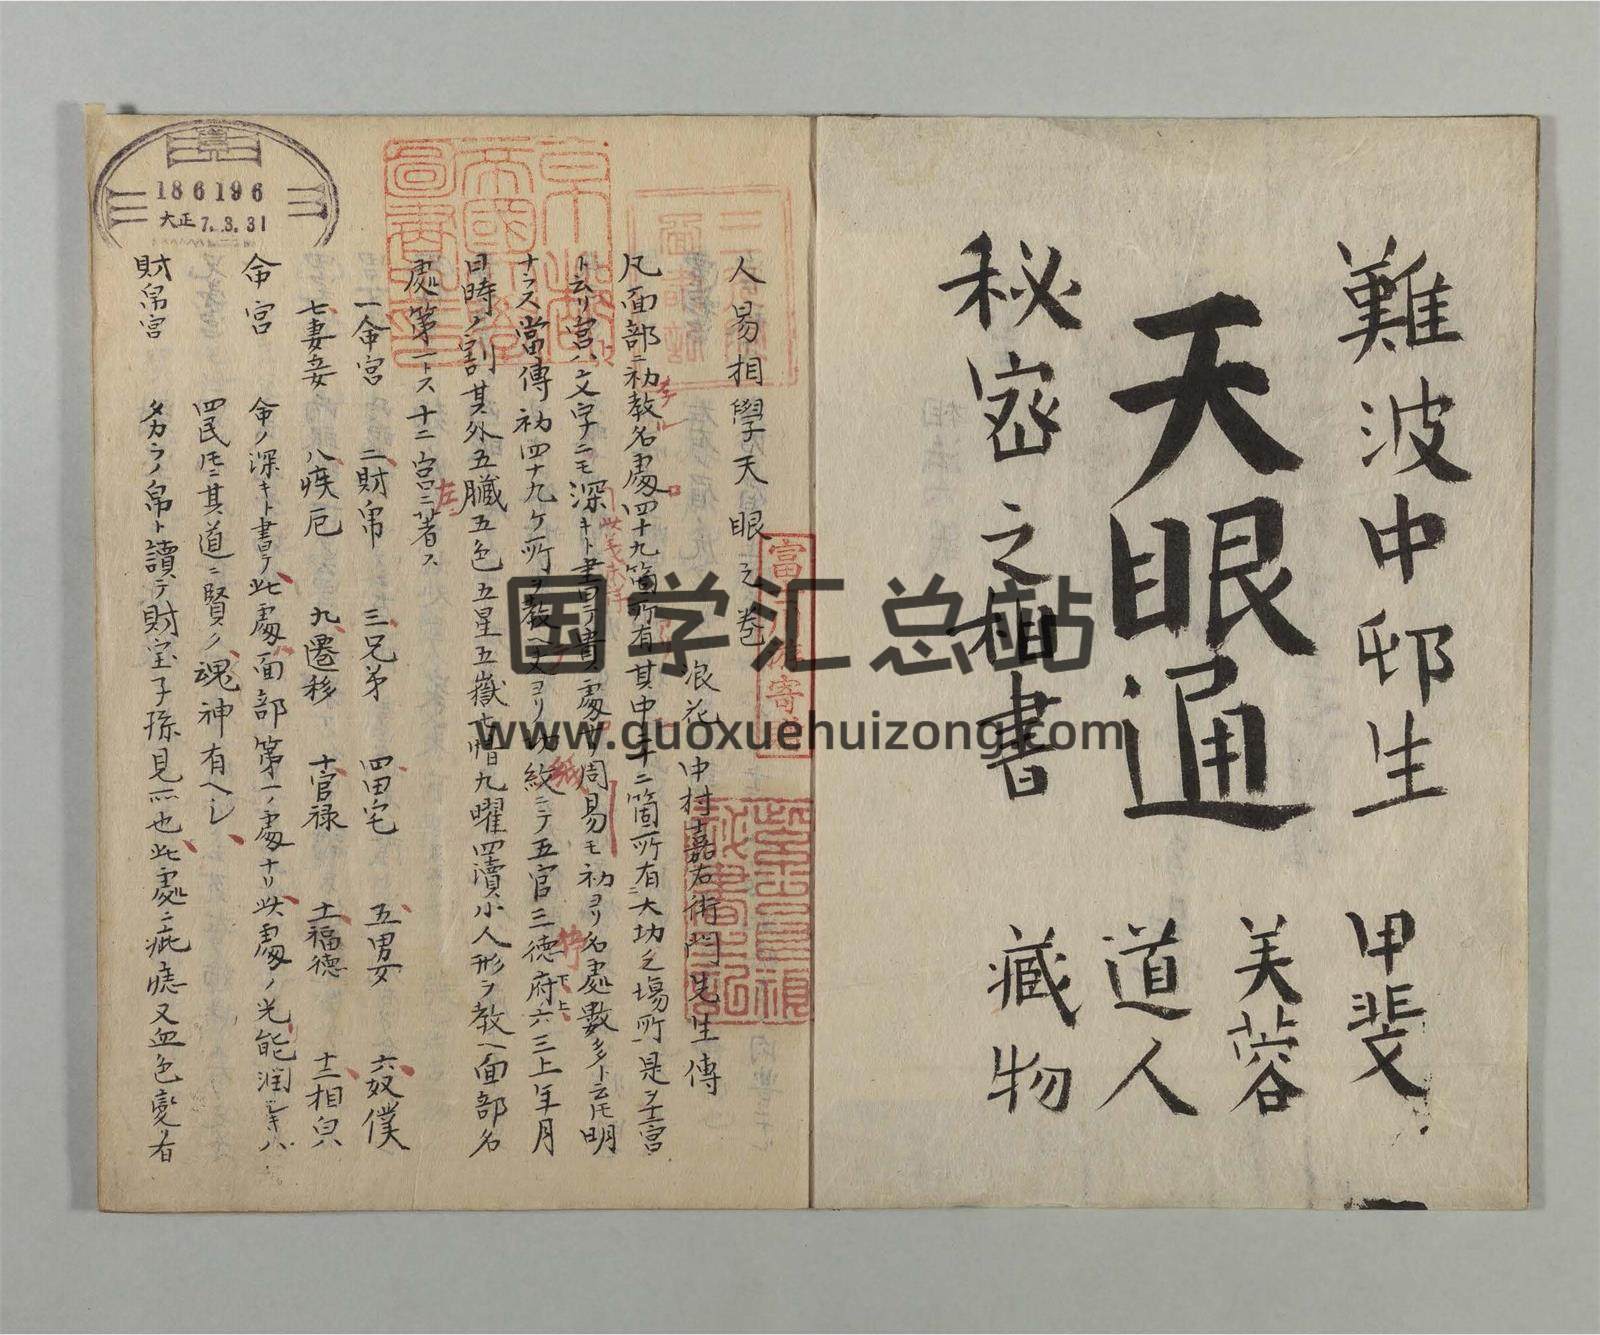 難波中邨生
天眼通
秘密之相書
甲斐
芙蓉
道人
藏物
人易相學天眼上之卷
浪花 中村嘉右衛門先生傳
凡面部ニ初教名處四十九箇所有其中二十二箇所有ニ大功之場所是ヲ十二宮
ト云リ宮ハ文字ニモ深キト書テ貴處
周易モ初ヨリ名處數多ト云ヒ明
ナラス當傳初四十九ケ所ヲ教ヘ
紋ニテ五官三德府六三上年月
日時ノ割其外五臟五色五星五嶽
九曜四瀆小人形ヲ教ヘ面部名
處第一トス十二宮ニ著ス
一命宮 二財帛 三兄弟 四田宅 五男女 六奴僕
七妻妾 八疾厄 九遷移 十官禄 十一福德 十二相皃
命宮 命ノ深キト書テ此處面部第一ノ處ナリ此處ノ光能潤
四民ニ其道ニ賢ノ魂神有ヘシ
財帛宮 タカラノ帛ト讀テ財宝子孫見所也此處ニ疵痣又血色變リ有
186196
大正7.3.31
京都帝國大學圖書之印
富士川游寄贈
国学汇总站
www.guoxuehuizong.com